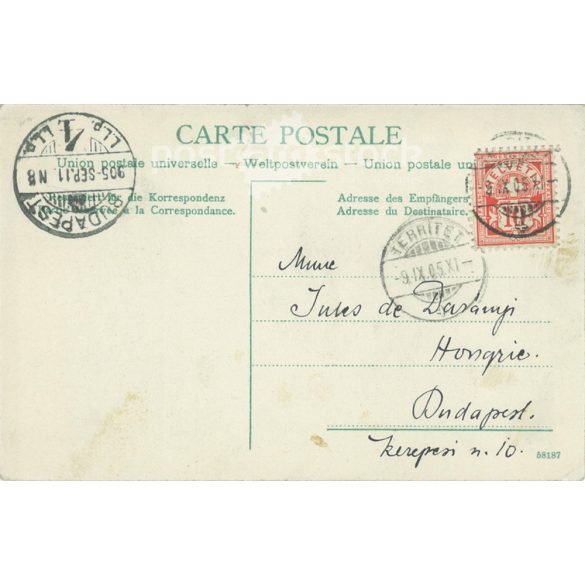 CARTE POSTALE
Union postale universelle – Weltpostverein – Union postale
für die Korrespondenz
à la Correspondance.
Adresse des Empfängers
Adresse du Destinataire.
BUDAPEST
905 SEP.11. N8
1. LL.P.
HELVETIA
10
-9.IX.05.XI-
TERRITET
-9.IX.05.XI-
Mme
Jules de
Hongrie.
Budapest.
Kerepesi u. 10.
58187